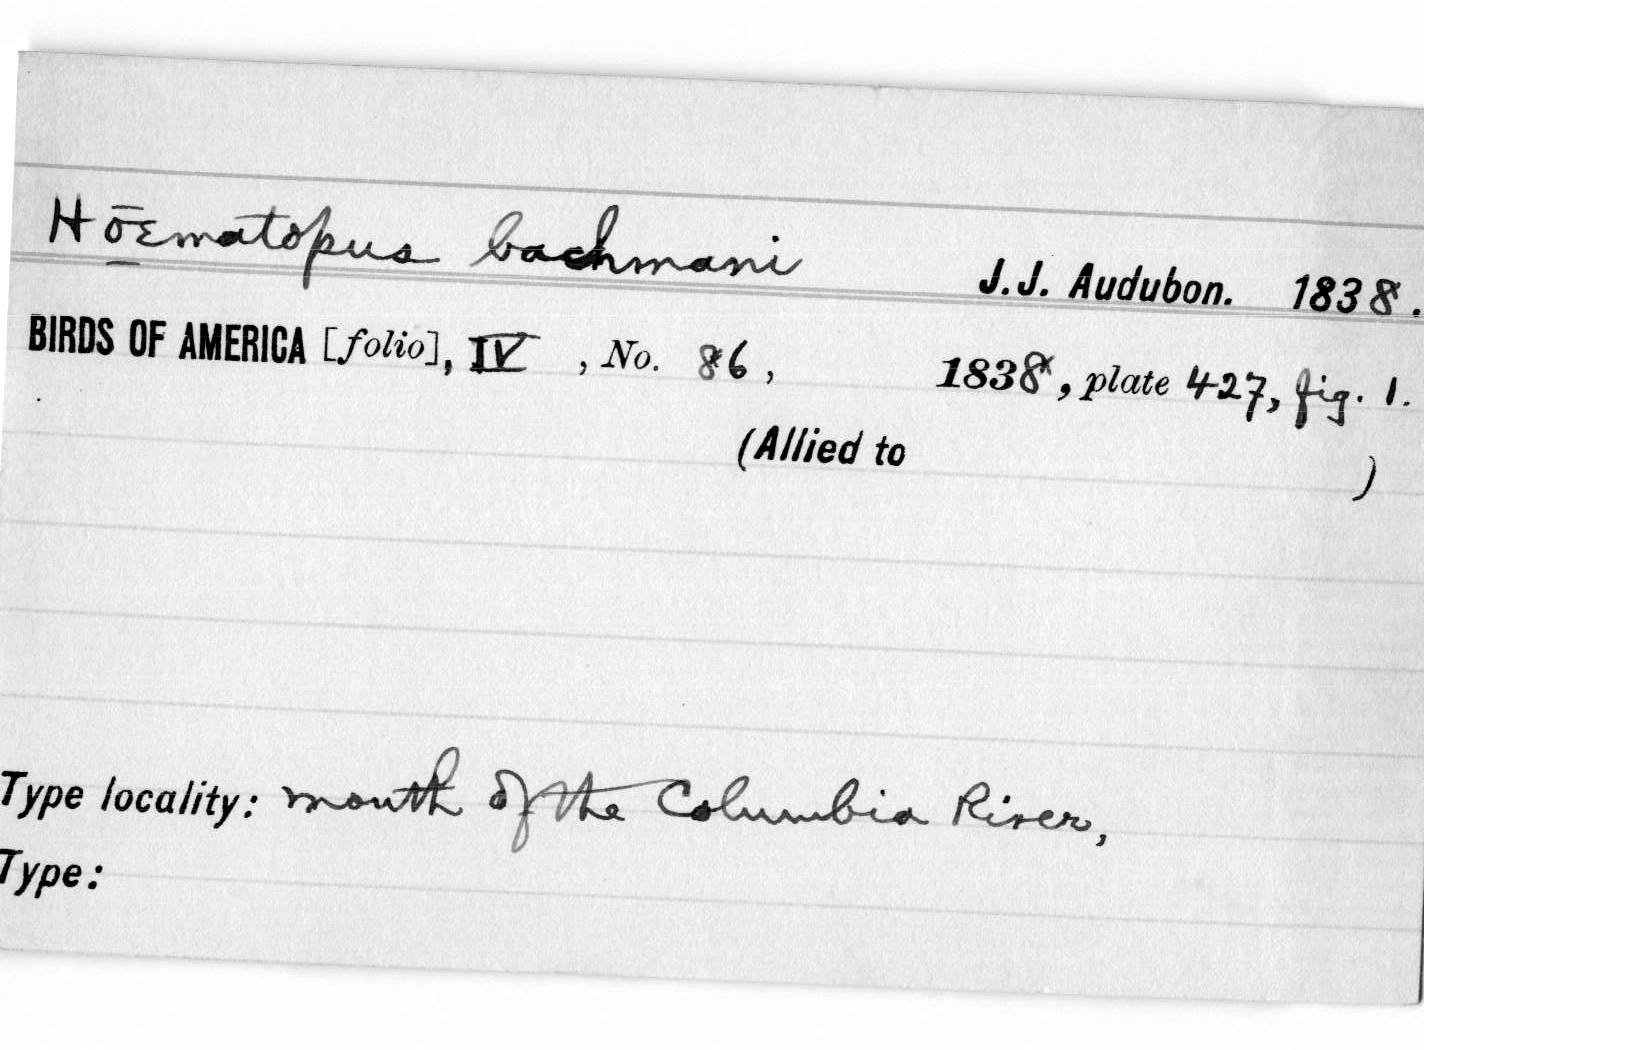 Hoematopus bachmani J.J. Audubon. 1838.
BIRDS OF AMERICA [folio], IV , No. 86, 1838, plate 427, fig. 1.
(Allied to )
Type locality: mouth of the Columbia River,
Type: